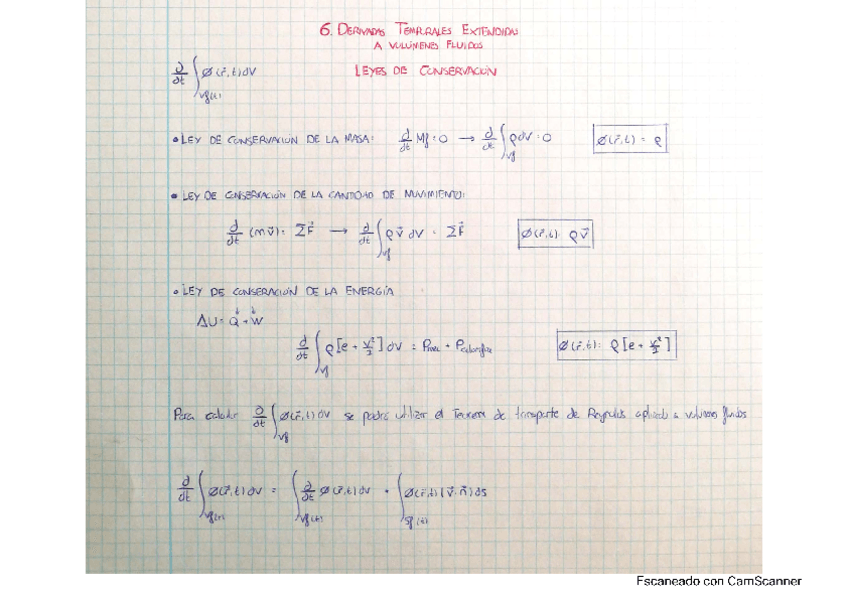 6. DERIVADAS TEMPORALES EXTENDIDAS
A VOLÚMENES FLUIDOS
∂/∂t ∫_{Vf(t)} Ø(r⃗,t)dV
LEYES DE CONSERVACIÓN
• LEY DE CONSERVACIÓN DE LA MASA: d/dt Mf = 0 → d/dt ∫_{Vf} ρdV = 0 Ø(r⃗,t) = ρ
• LEY DE CONSERVACIÓN DE LA CANTIDAD DE MOVIMIENTO:
d/dt (mv⃗) = ΣF⃗ → d/dt ∫_{Vf} ρv⃗ dV = ΣF⃗ Ø(r⃗,t) = ρv⃗
• LEY DE CONSERACIÓN DE LA ENERGÍA
ΔU = Q + W
d/dt ∫_{Vf} ρ[e + v²/2] dV = Pmec + Pcalorífica Ø(r⃗,t) = ρ[e + v²/2]
Para calcular ∂/∂t ∫_{Vf} Ø(r⃗,t) dV se podrá utilizar el Teorema de transporte de Reynolds aplicado a volúmenes fluidos
d/dt ∫_{Vf(t)} Ø(r⃗,t) dV = ∫_{Vf(t)} ∂/∂t Ø(r⃗,t) dV + ∫_{Sf(t)} Ø(r⃗,t) (v⃗·n⃗) ds
Escaneado con CamScanner